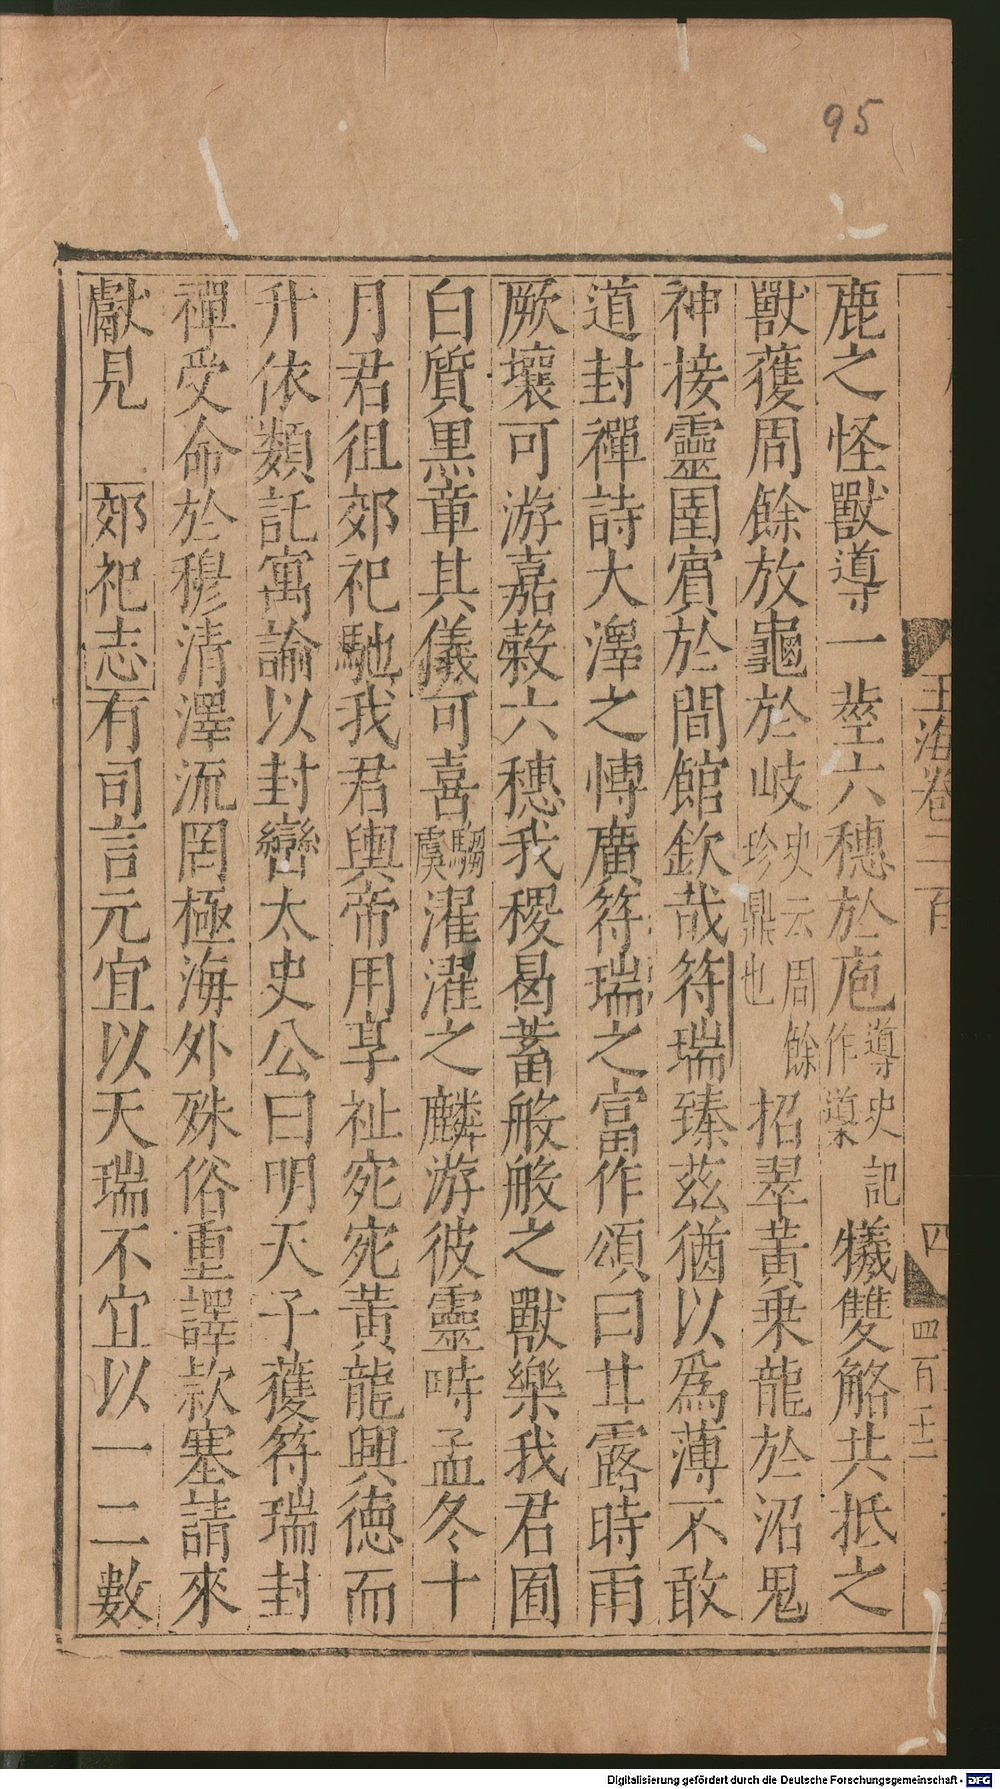 95
玉海卷二百
四
鹿之怪獸導一莖六穗於庖導史記作䆃犧雙觡共抵之
獸獲周餘放龜於岐史云周餘珍鼎也招翠黃乗龍於沼鬼
神接靈圉賔於間館欽哉符瑞臻茲猶以爲薄不敢
道封禪詩大澤之愽廣符瑞之富作頌曰甘露時雨
厥壤可游嘉榖六穗我稷曷蓄般般之獸樂我君囿
白質黒章其儀可喜騶虞濯濯之麟游彼靈畤孟冬十
月君徂郊祀馳我君輿帝用享祉宛宛黃龍興德而
升依類託寓諭以封巒太史公曰明天子獲符瑞封
禪受命於穆清澤流罔極海外殊俗重譯款塞請來
獻見 郊祀志有司言元宜以天瑞不宜以一二數
Digitalisierung gefördert durch die Deutsche Forschungsgemeinschaft - DFG